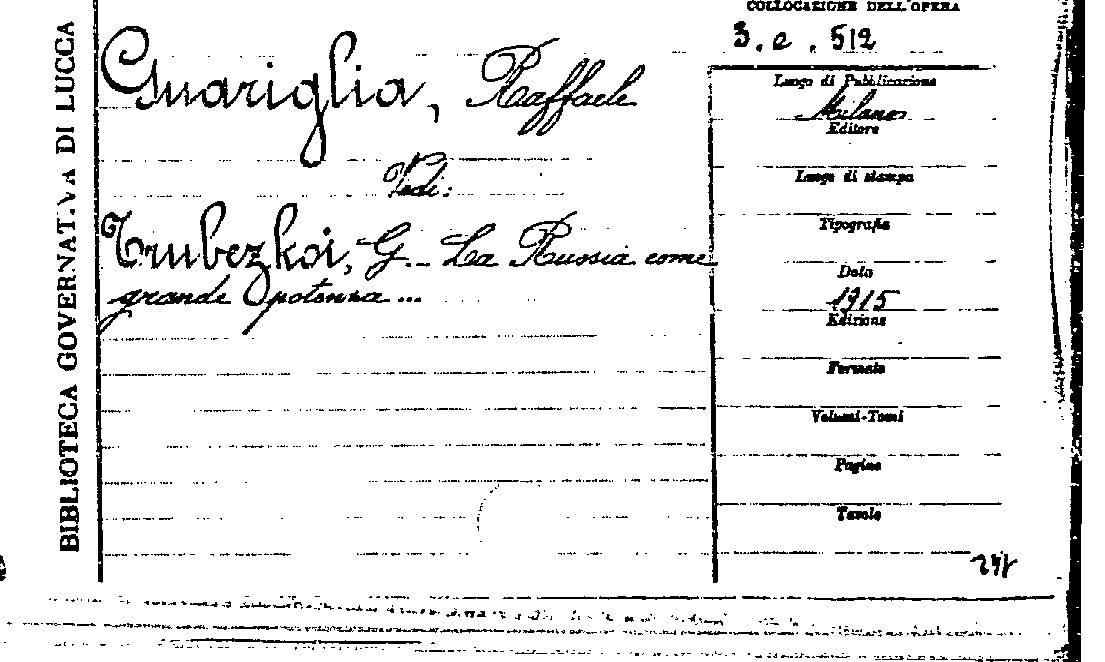 BIBLIOTECA GOVERNATIVA DI LUCCA
COLLOCAZIONE DELL'OPERA
3. e. 512
Guariglia, Raffaele
Vedi:
Trubezkoi, G. - La Russia come
grande potenza ...
Luogo di Pubblicazione
Milano
Editore
Luogo di stampa
Tipografia
Data
1915
Edizione
Formato
Volumi-Tomi
Pagine
Tavole